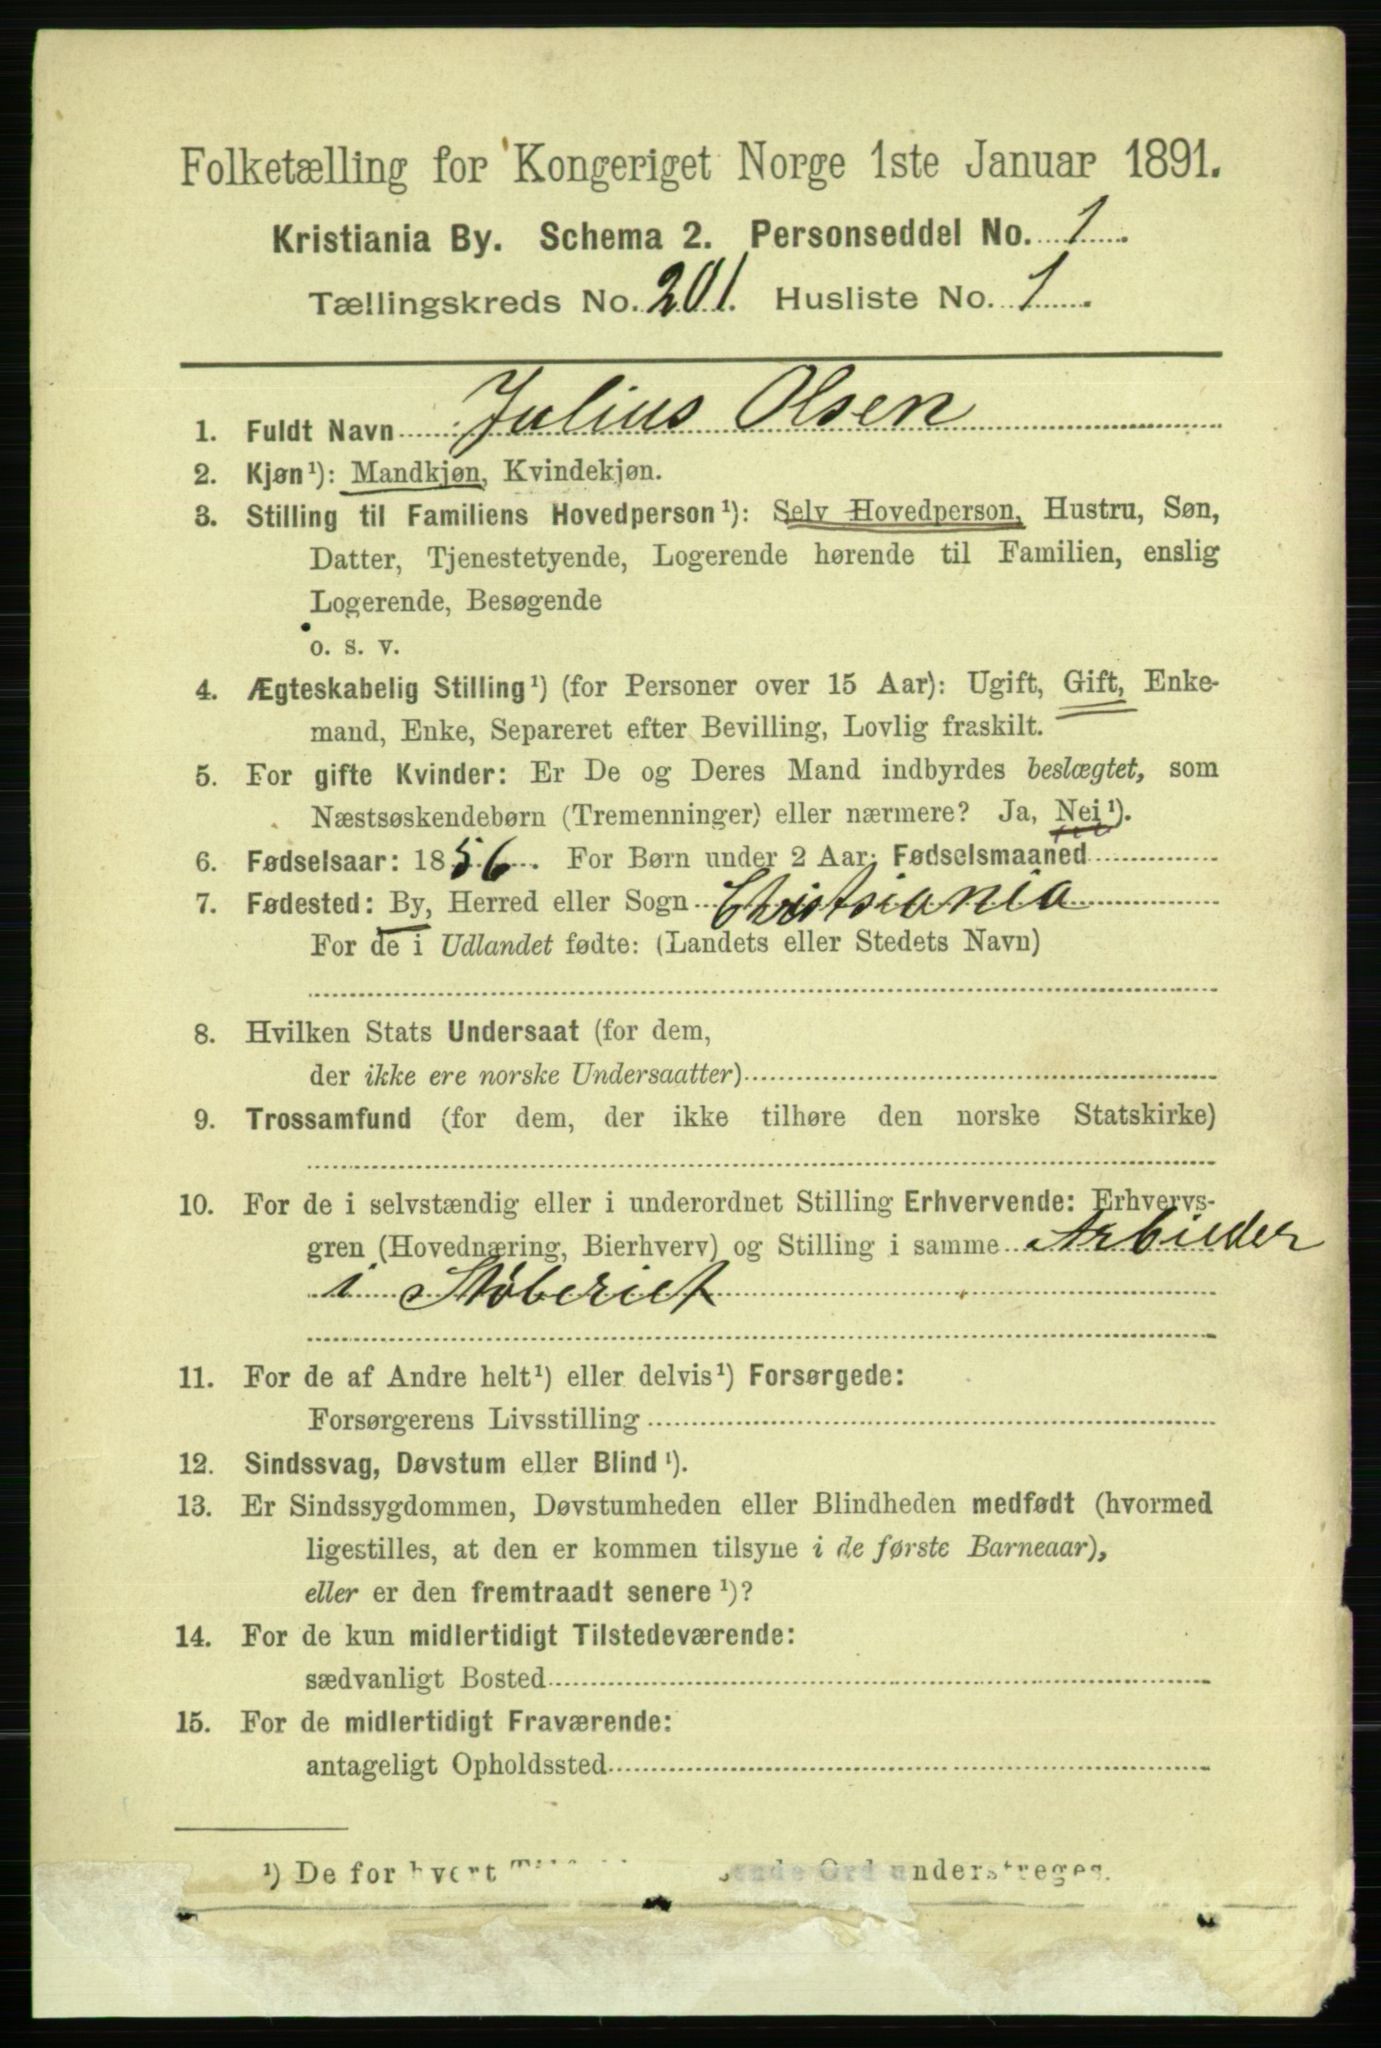 Folketælling for Kongeriget Norge 1ste Januar 1891.
Kristiania By. Schema 2. Personseddel No. 1
Tællingskreds No. 201. Husliste No. 1
1. Fuldt Navn Julius Olsen
2. Kjøn¹): Mandkjøn, Kvindekjøn.
3. Stilling til Familiens Hovedperson¹): Selv Hovedperson, Hustru, Søn,
Datter, Tjenestetyende, Logerende hørende til Familien, enslig
Logerende, Besøgende
o. s. v.
4. Ægteskabelig Stilling¹) (for Personer over 15 Aar): Ugift, Gift, Enke-
mand, Enke, Separeret efter Bevilling, Lovlig fraskilt.
5. For gifte Kvinder: Er De og Deres Mand indbyrdes beslægtet, som
Næstsøskendebørn (Tremenninger) eller nærmere? Ja, Nei¹).
6. Fødselsaar: 1856. For Børn under 2 Aar: Fødselsmaaned
7. Fødested: By, Herred eller Sogn Christiania
For de i Udlandet fødte: (Landets eller Stedets Navn)
8. Hvilken Stats Undersaat (for dem,
der ikke ere norske Undersaatter)
9. Trossamfund (for dem, der ikke tilhøre den norske Statskirke)
10. For de i selvstændig eller i underordnet Stilling Erhvervende: Erhvervs-
gren (Hovednæring, Bierhverv) og Stilling i samme Arbieder
i Støberiet
11. For de af Andre helt¹) eller delvis¹) Forsørgede:
Forsørgerens Livsstilling
12. Sindssvag, Døvstum eller Blind¹).
13. Er Sindssygdommen, Døvstumheden eller Blindheden medfødt (hvormed
ligestilles, at den er kommen tilsyne i de første Barneaar),
eller er den fremtraadt senere¹)?
14. For de kun midlertidigt Tilstedeværende:
sædvanligt Bosted
15. For de midlertidigt Fraværende:
antageligt Opholdssted
¹) De for hvert Ord understreges.